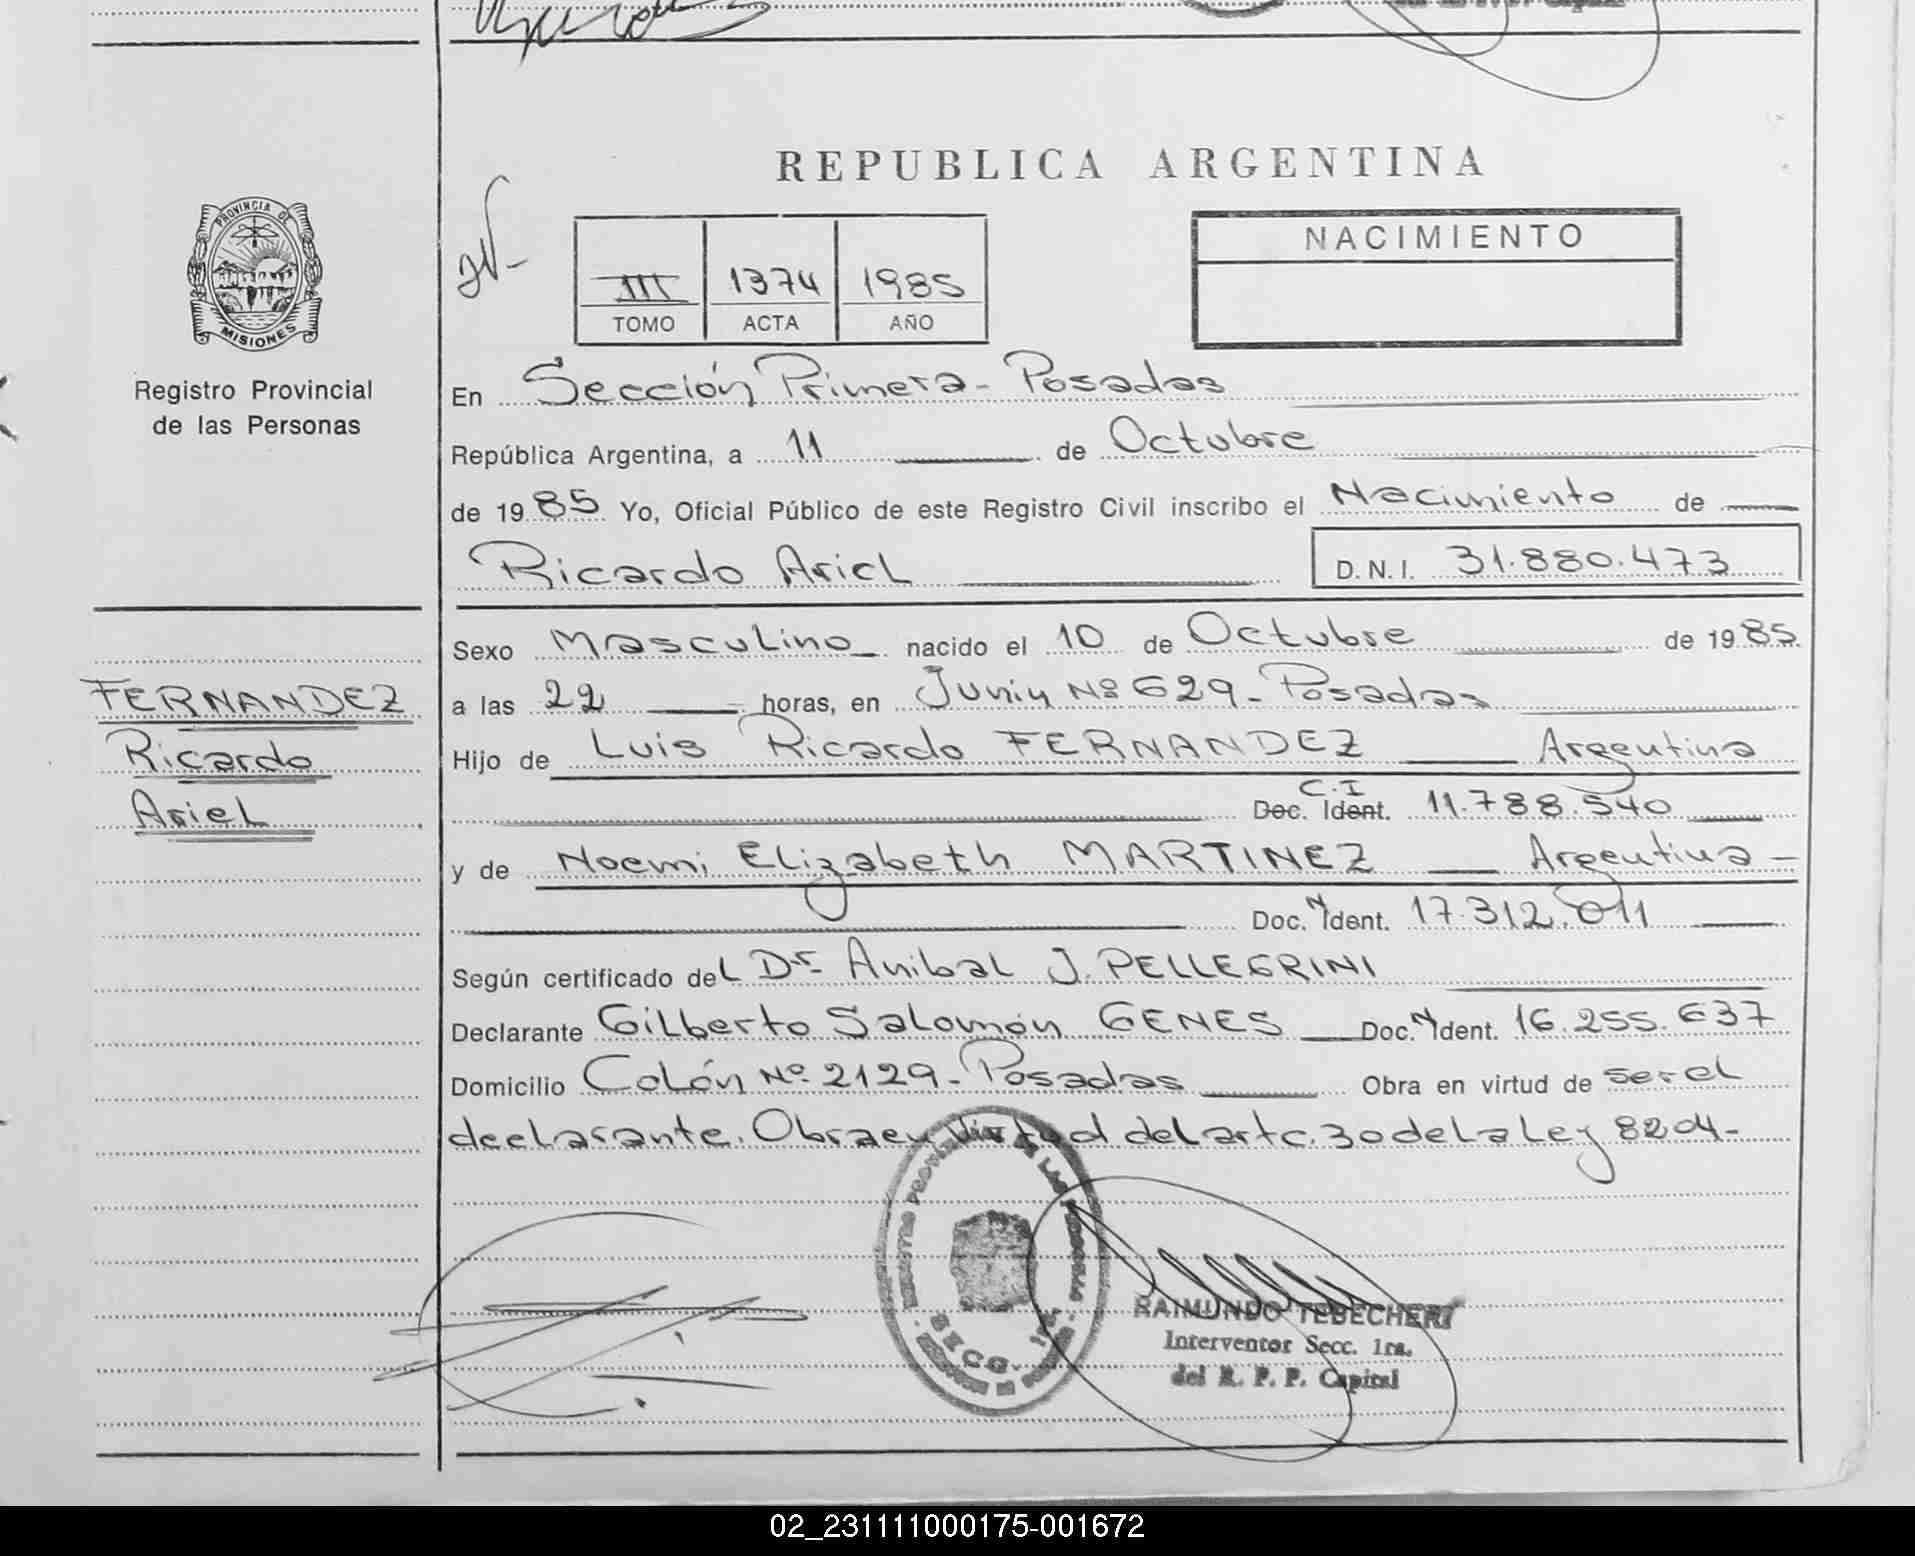 REPUBLICA ARGENTINA
PROVINCIA DE
MISIONES
Registro Provincial
de las Personas
III 1374 1985
TOMO ACTA AÑO
NACIMIENTO
En Sección Primera - Posadas
República Argentina, a 11 de Octubre
de 1985 Yo, Oficial Público de este Registro Civil inscribo el Nacimiento de
Ricardo Ariel D.N.I. 31.880.473
FERNANDEZ
Ricardo
Ariel
Sexo Masculino nacido el 10 de Octubre de 1985
a las 22 horas, en Junin Nº 629 - Posadas
Hijo de Luis Ricardo FERNANDEZ Argentina
C.I
Doc. Ident. 11.788.540
y de Noemi Elizabeth MARTINEZ Argentina -
Doc. N Ident. 17.312.011
Según certificado del Dr. Anibal J. PELLEGRINI
Declarante Gilberto Salomón GENES Doc. N Ident. 16.255.637
Domicilio Colón Nº 2129 - Posadas Obra en virtud de ser el
declarante. Obra en virtud del artc. 30 de la Ley 8204 -
SECC. 1ra.
RAIMUNDO TEBECHERI
Interventor Secc. 1ra.
del R. P. P. Capital
02_231111000175-001672